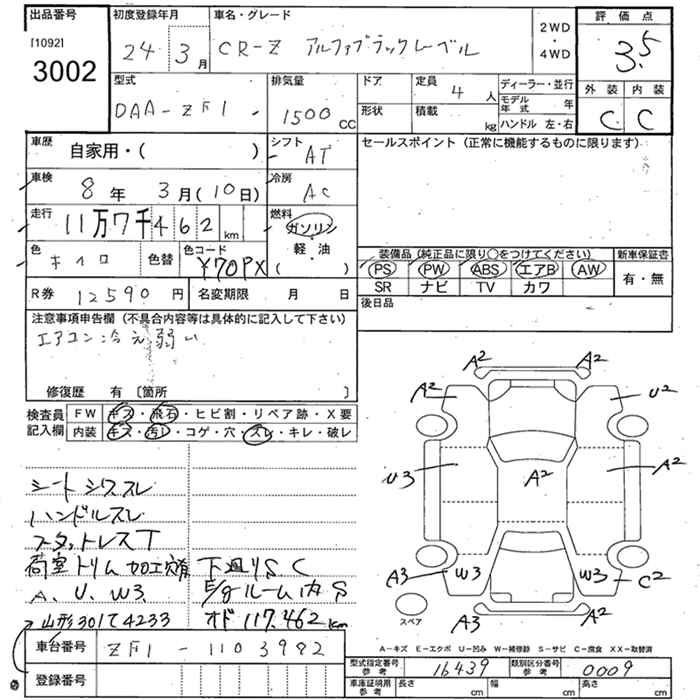 出品番号
[1092]
3002
初度登録年月
24 3月
車名・グレード
CR-Z アルファブラックレーベル
2WD
・
4WD
評価点
3.5
外装 内装
C C
型式
DAA-ZF1
排気量
1500 CC
ドア
形状
定員 4 人
積載 kg
ディーラー・並行
モデル年式 年
ハンドル 左・右
車歴
自家用・( )
シフト
AT
セールスポイント (正常に機能するものに限ります)
車検
8年 3月(10日)
冷房
AC
走行
11万7千462km
燃料
ガソリン
・
軽・油
( )
色
キイロ
色替
色コード
Y70PX
装備品 (純正品に限り○をつけてください)
PS PW ABS エアB AW
SR ナビ TV カワ
新車保証書
有・無
R券 12590円
名変期限 月 日
後日品
注意事項申告欄 (不具合内容等は具体的に記入して下さい)
エアコン冷え弱い
修復歴 有 〔箇所 〕
検査員
記入欄
FW キズ・飛石・ヒビ割・リペア跡・X要
内装 キズ・汚レ・コゲ・穴・スレ・キレ・破レ
シートシワスレ
ハンドルスレ
スタットレスT
荷室トリム加工有
A、U、W3
→山形301て4233
下廻りS C
E/gルーム内S
オド117.462km
A2 A2
A2 U2
U3 A2 A2
A3 W3 W3 C2
A3 A2
スペア
A-キズ E-エクボ U-凹み W-補修跡 S-サビ C-腐食 XX-取替済
車台番号 ZF1-1103982
登録番号
型式指定番号
参考
16439
類別区分番号
参考
0009
車庫証明用
参考
長さ cm 幅 cm 高さ cm